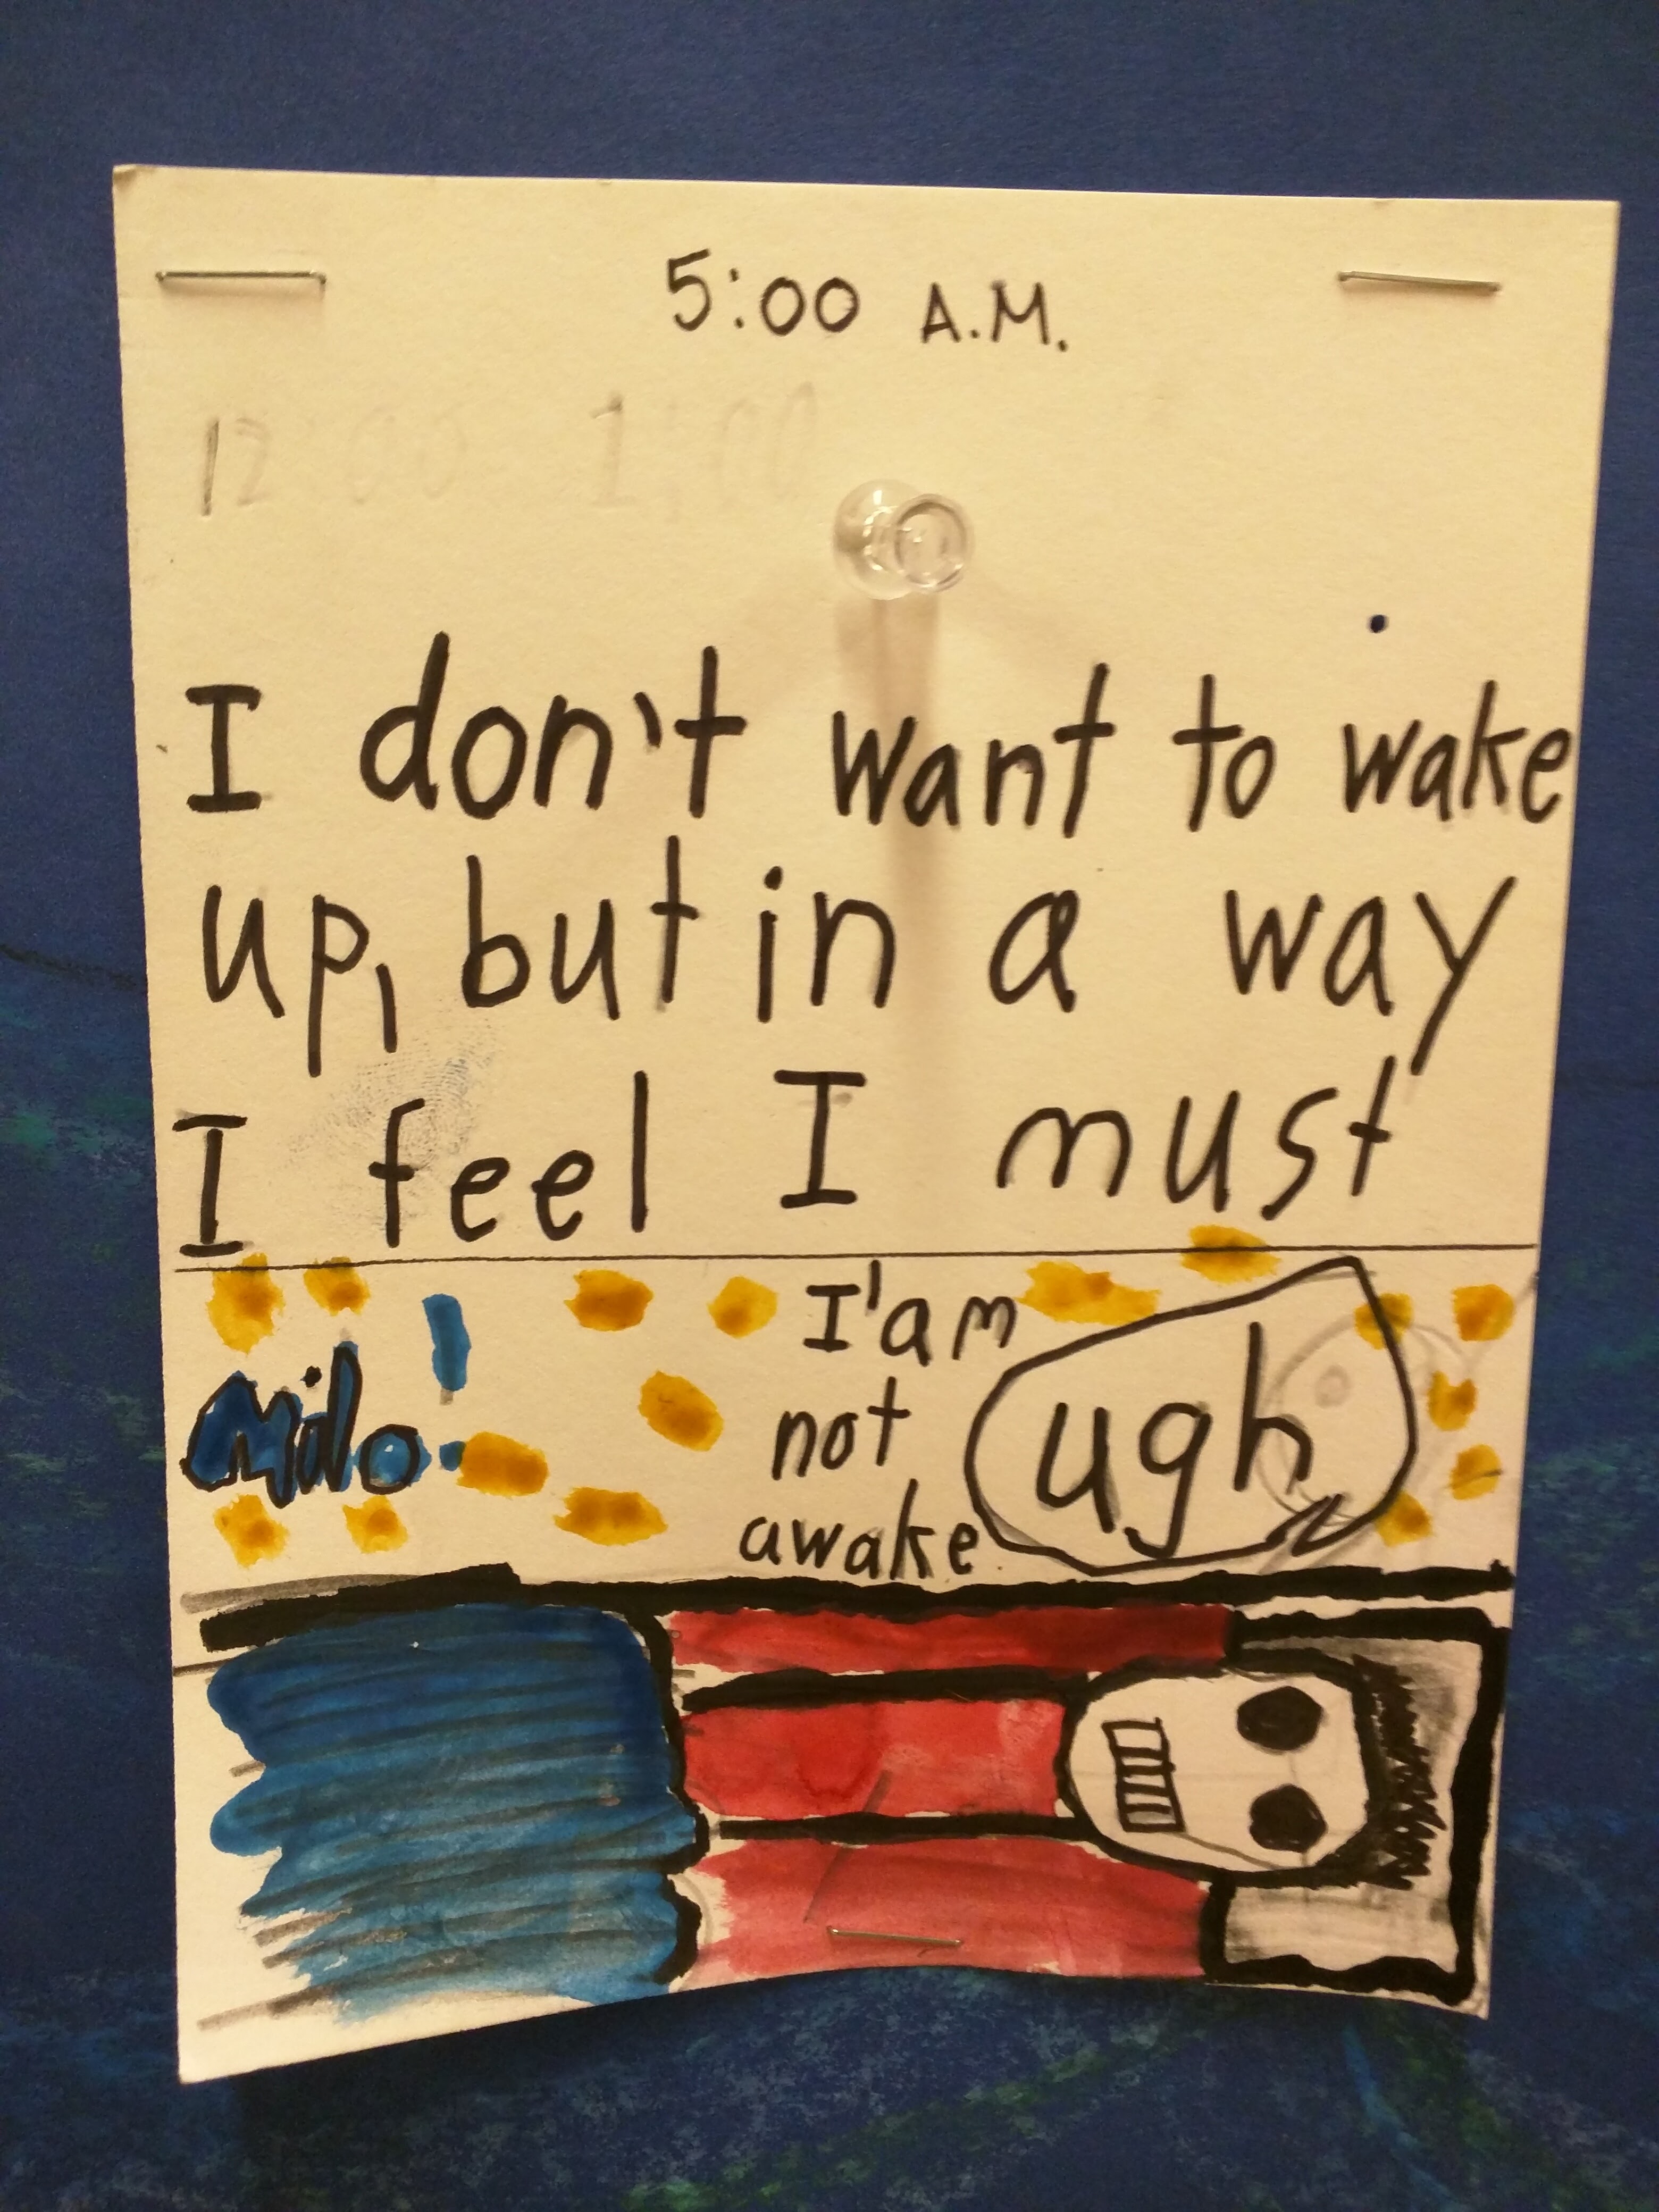 5:00 A.M.
12:00 1:00
I don't want to wake
up, but in a way
I feel I must
Milo!
I'am
not
awake
ugh